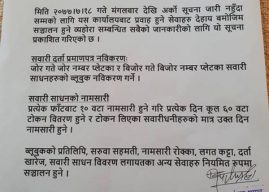 मिति २०७७।५।१८ गते मंगलबार देखि अर्को सूचना जारी नहुँदा
सम्मको लागि यस कार्यालयबाट प्रवाह हुने सेवाहरु देहाय बमोजिम
सञ्चालन हुने व्यहोरा सम्बन्धित सबैको जानकारीको लागि यो सूचना
प्रकाशित गरिएको छ ।
सवारी दर्ता प्रमाणपत्र नविकरणः
जोर गते जोर नम्बर प्लेटका र बिजोर गते बिजोर नम्बर प्लेटका सवारी
साधनहरुको ब्लूबुक नविकरण गर्ने ।
सवारी साधनको नामसारी
प्रत्येक फाँटबाट १० वटा नामसारी हुने गरि प्रत्येक दिन कूल ६० वटा
टोकन वितरण हुने र टोकन लिएका सवारीधनीहरुको मात्र उक्त दिन
नामसारी हुने ।
ब्लूबुकको प्रतिलिपि, सरुवा सहमती, नामसारी रोक्का, लगत कट्टा, दर्ता
खारेज, सवारी साधन विवरण लगायतका अन्य सेवाहरु नियमित रूपमा
सञ्चालन हुने ।